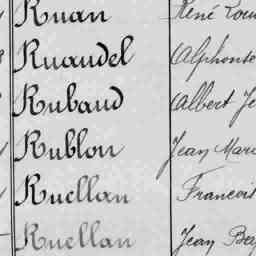 Ruan René Loui
Ruaudel Alphonse
Rubaud Albert Je
Rublon Jean Marc
Ruellan Francois
Ruellan Jean Ba